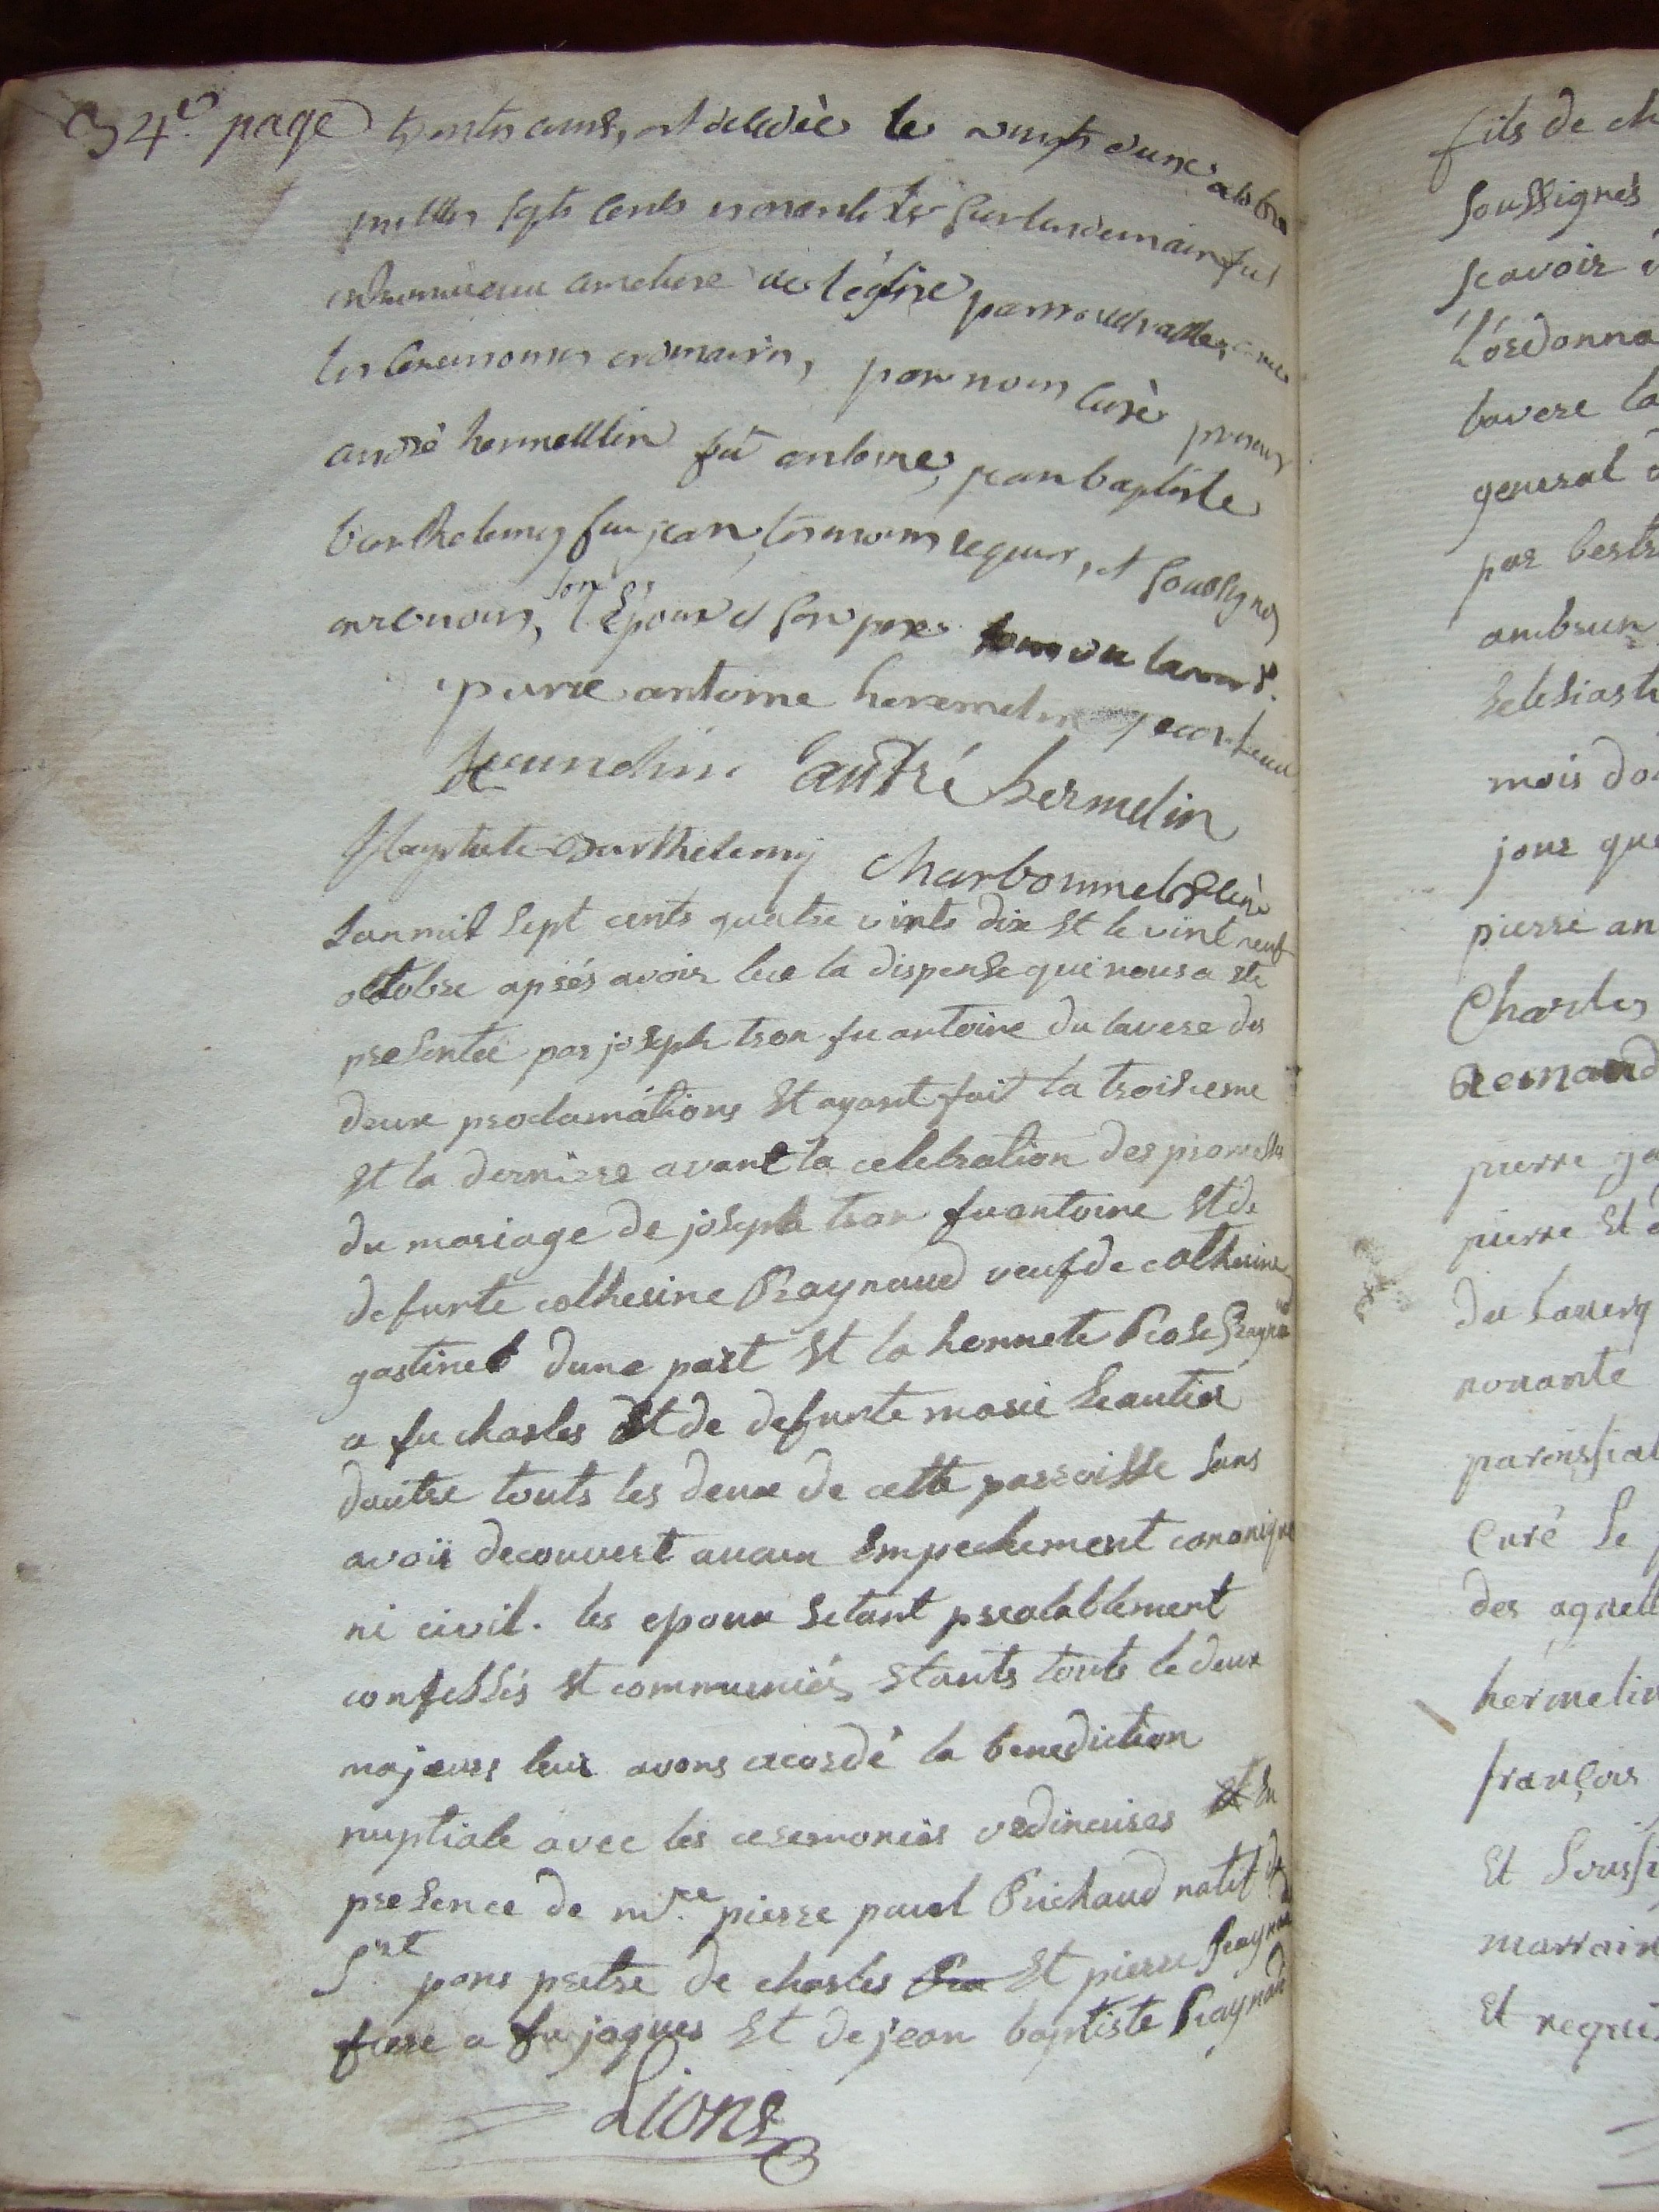 34e page trentes ans, est decedèe le vingts d'une octobre
milles sept cents nonante & sur lendemain fut
cimetiere de l'église paroissialle, avec
les ceremonies ordinaires, par nous curè presens
andré hermellin fû antoine, jean baptiste
barthelemy fu jean, temoins requis, et soussignes
avec nous, l'Epoux et son pere
pierre antoine heremelin
andré hermelin
J baptiste Barthelemy Charbonnel curè
Lan mil sept cents quatre vints dix Et le vint neuf
octobre aprés avoir lue la dispense qui nous a ete
presentée par joseph tron fu antoine du lavere des
deux proclamations Et ayant fait la troisieme
Et la derniere avant la celebration des promesses
du mariage de joseph tron fu antoine Et de
defunte catherine Raynaud veuf de catherine
gastinel dune part Et la honnete Rose Raynaud
a fu charles Et de defunte marie Leautier
dautre touts les deux de cette parroisse sans
avoir decouvert aucun Empechement canonique
ni civil. les epoux setant prealablement
confessés Et communiés Etants touts le deux
majeurs leur avons acordé la benediction
nuptiale avec les ceremonies ordinaires Et En
presence de mre pierre paul Richaud natif de
St pons pretre de charles Ra Et pierre Raynaud
frere a fu jaques Et de jean baptiste Raynaud
Lions
fils de ch
soussignés
scavoir
L'ordonna
lavere la
general d
par bertr
ambrun
Eclesiasti
mois do
jour que
pierre an
Charles
Reinaud
pierre ga
pierre Et d
du laverq
nonante
paroissial
Curé Se p
des agnell
hermelin
françois
Et soussi
marrain
Et requis